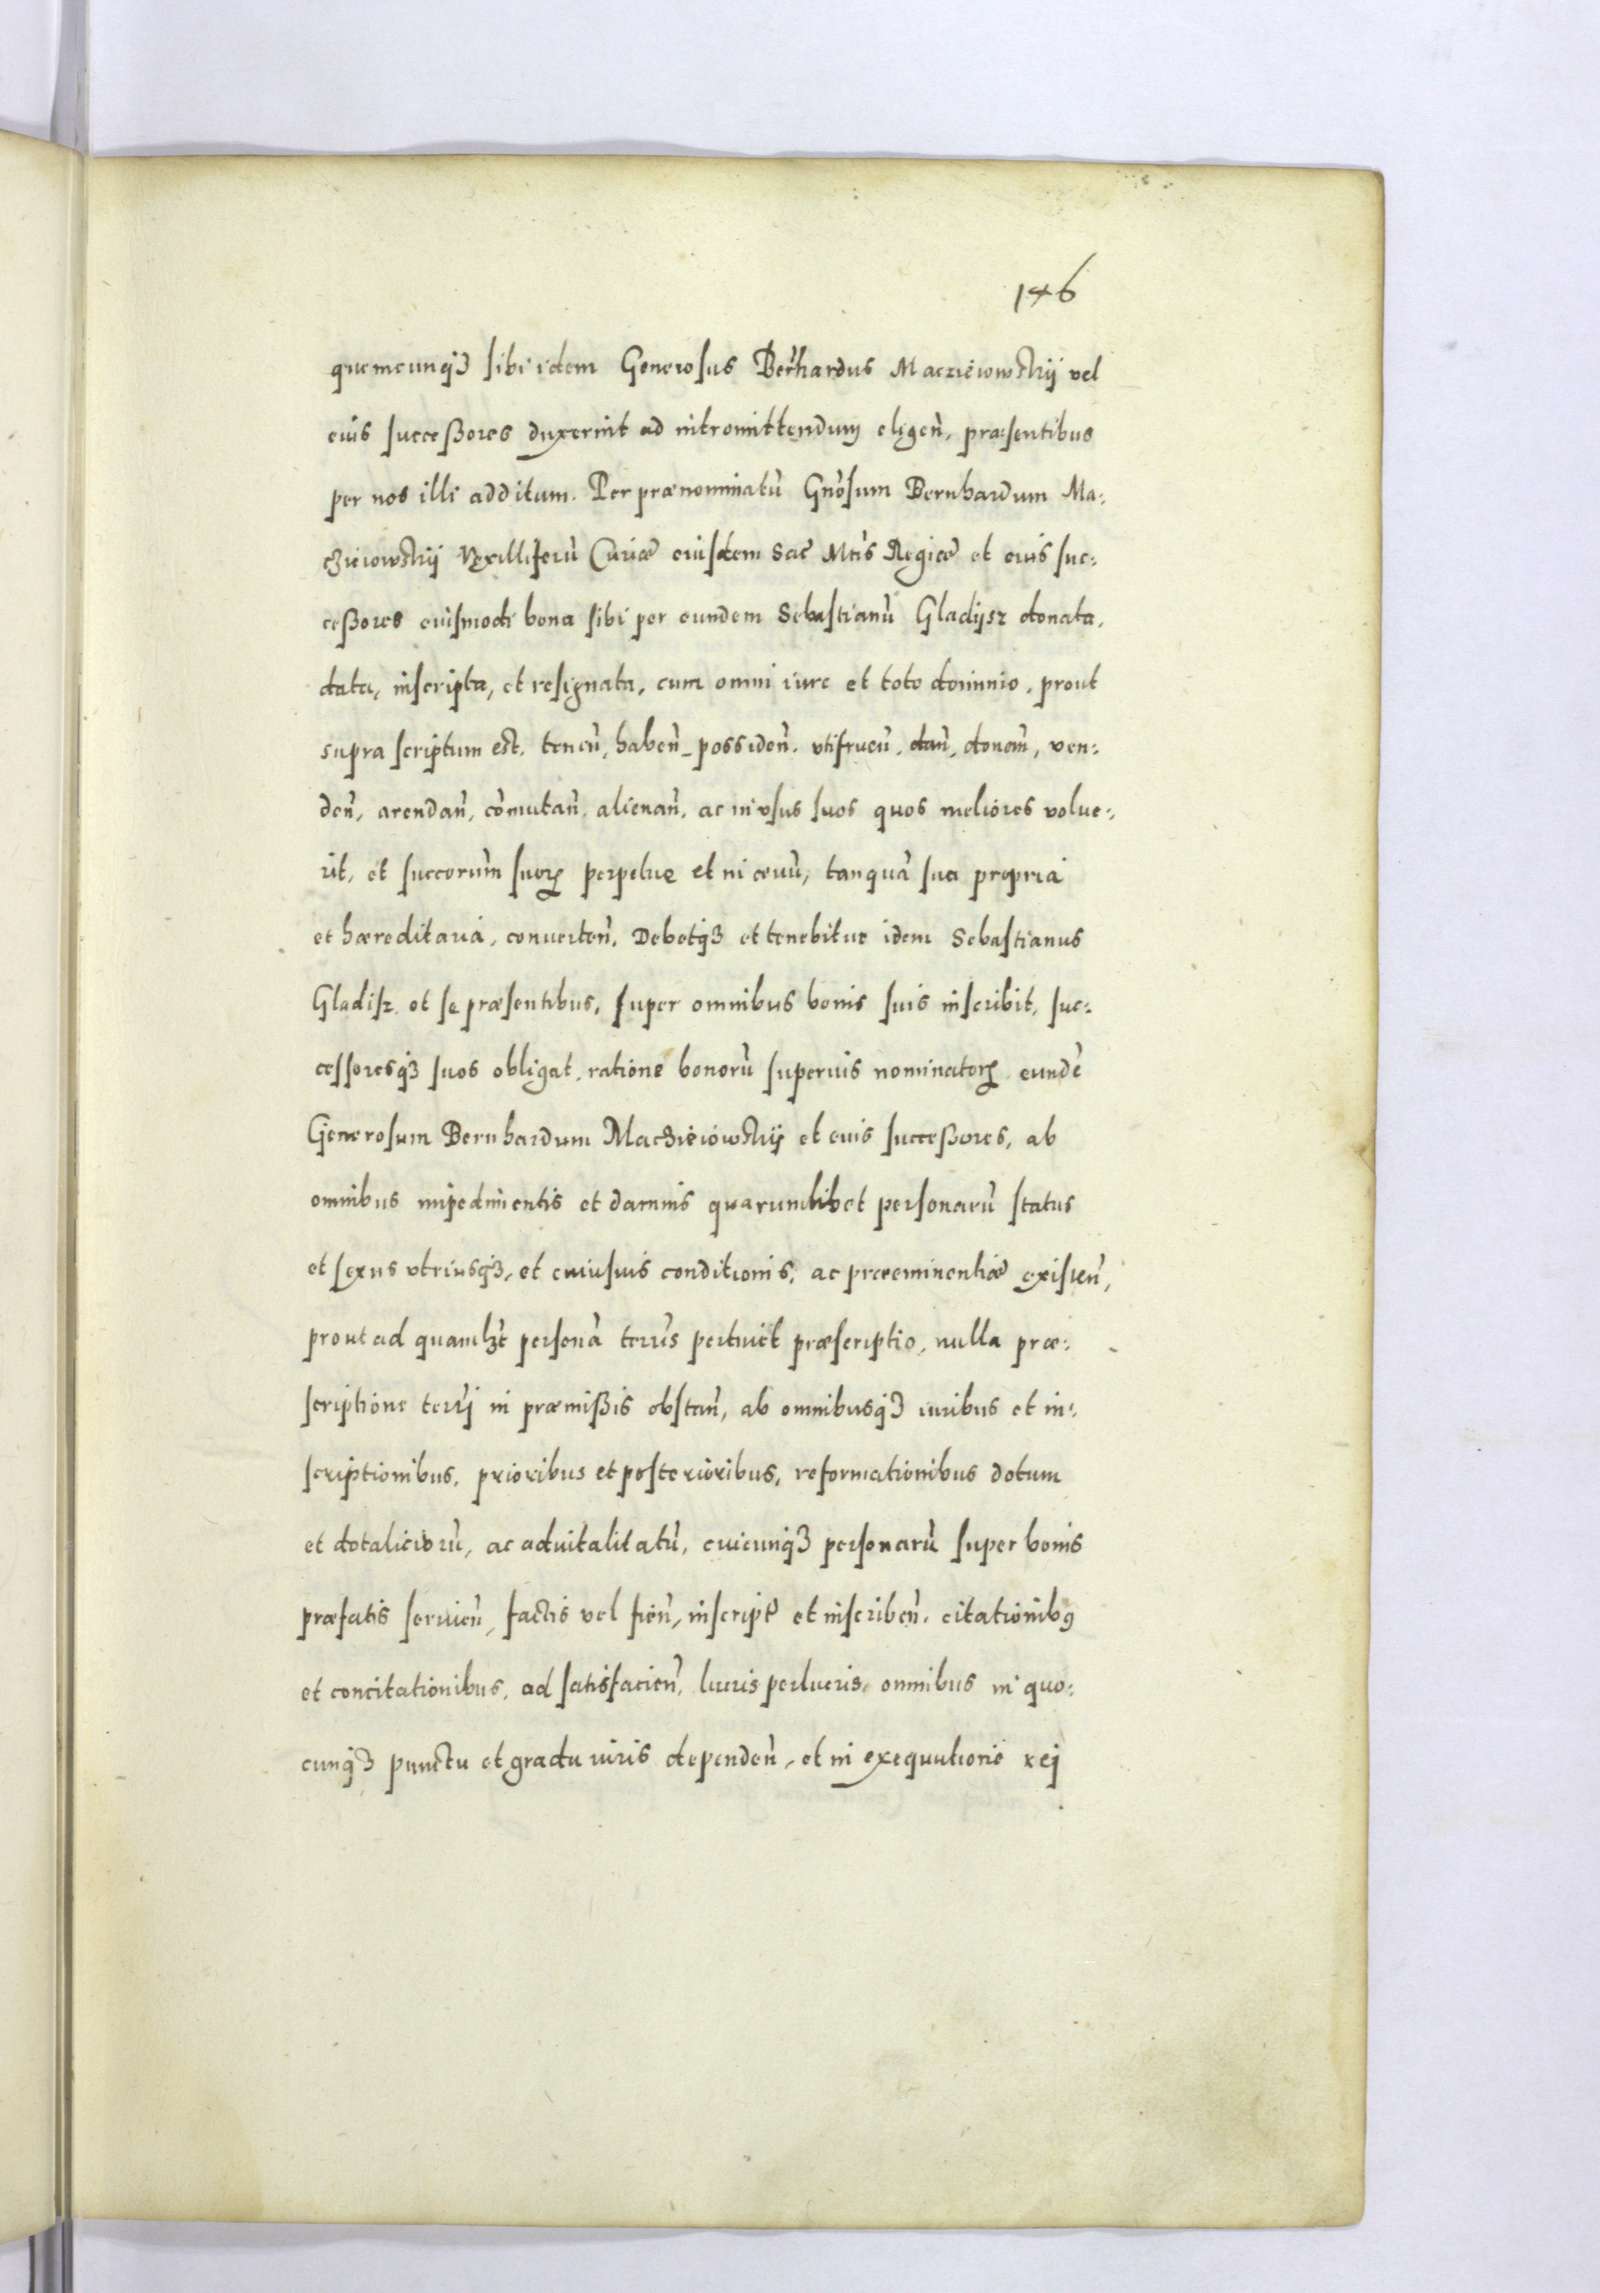 146
quemcunq3 sibi idem Generosus Berhardus Macziéiowskij vel
eius succeßores duxerint ad intromittendum eligen̄, præsentibus
per nos illi additum. Per prænominatū Gnōsum Bernhardum Ma:
cziéiowskij Vexilliferū Curiæ eiusdem Sac̄ Mtīs Regiæ et eius suc:
ceßores eiusmodi bona sibi per eundem Sebastianū Gladijsz donata,
data, inscripta, et resignata, cum omni iure et toto dominio, prout
supra scriptum est. tenen̄, haben̄, possiden̄. vtifruen̄. dan̄, donan̄, ven:
den̄, arendan̄, cōmutan̄, alienan̄, ac in vsus suos quos meliores volue:
rit, et succorum̄ suorꝝ perpetue et in æuū, tanquā sua propria
et hæreditaria, conuerten̄. Debetq3 et tenebitur idem Sebastianus
Gladisz. et se præsentibus, super omnibus bonis suis inscribit, suc:
cessoresq3 suos obligat, ratione bonorū superius nominatorꝝ eundē
Generosum Bernhardum Macziéiówskij et eius succeßores, ab
omnibus impedimentis et damnis quarumlibet personarū status
et sexus vtriusq3, et cuiusuis conditionis, ac præeminentiæ existen̄,
prout ad quamlzt personā terrīs pertinet præscriptio, nulla præ:
scriptione terrīj in præmißis obstan̄, ab omnibusq3 iuribus et in:
scriptionibus, prioribus et posterioribus, reformationibus dotum
et dotaliciorū, ac aduitalitatū, cuicunq3 personarū super bonis
præfatis seruien̄, factis vel fien̄, inscript̄ et inscriben̄. citationibꝰ
et concitationibus, ad satisfacien̄. lucris perlucris, omnibus in quo:
cunq3 punctu et gradu iuris dependen̄, et in exequutione rej